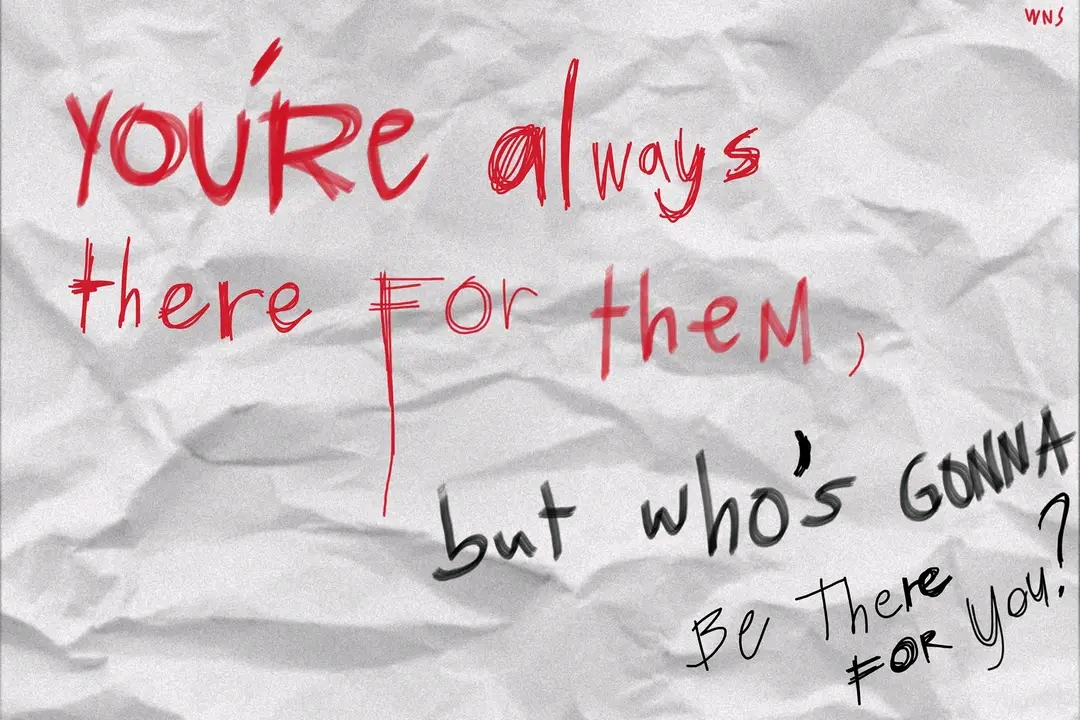 WNS
YOU'Re always
there For theM,
but who's GONNA
Be There
FOR You?